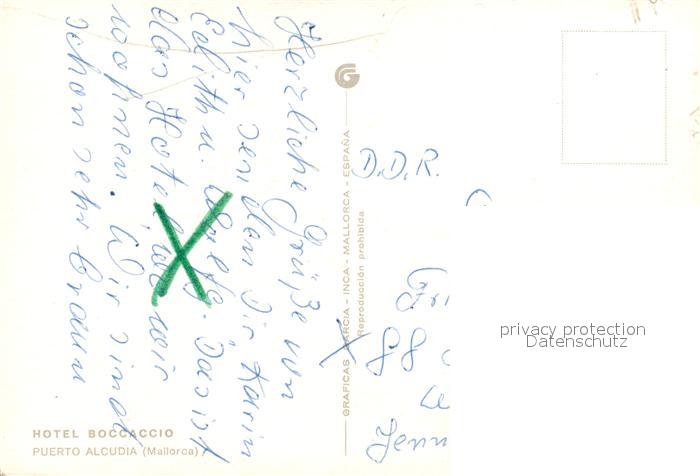 Herzliche Grüße von
hier senden Dir Karin
Edith u. Das ist
das Hotel, wo wir
wohnen. Wir sind
schon sehr braun
HOTEL BOCCACCIO
PUERTO ALCUDIA (Mallorca)
GRAFICAS GARCIA - INCA - MALLORCA - ESPAÑA
Reproducción prohibida
D.D.R.
Fri
88
Jenn
privacy protection
Datenschutz